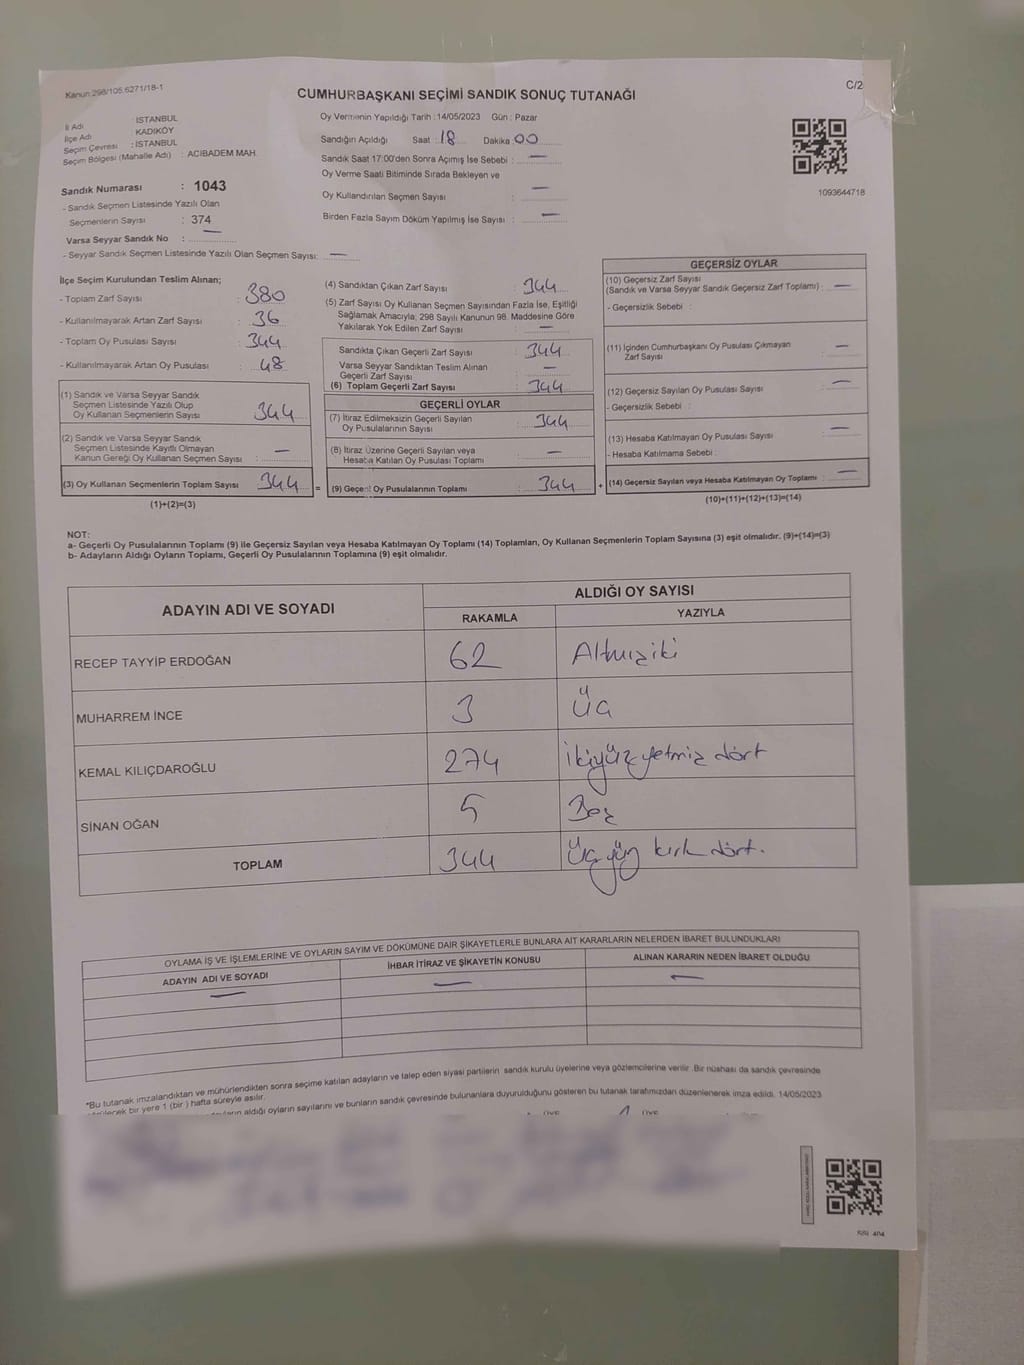 Kanun:298/105.6271/18-1
C/2
CUMHURBAŞKANI SEÇİMİ SANDIK SONUÇ TUTANAĞI
İl Adı : İSTANBUL
İlçe Adı : KADIKÖY
Seçim Çevresi : İSTANBUL
Seçim Bölgesi (Mahalle Adı) : ACIBADEM MAH.
Sandık Numarası : 1043
- Sandık Seçmen Listesinde Yazılı Olan
Seçmenlerin Sayısı : 374
Varsa Seyyar Sandık No : —
- Seyyar Sandık Seçmen Listesinde Yazılı Olan Seçmen Sayısı: —
Oy Vermenin Yapıldığı Tarih :14/05/2023 Gün : Pazar
Sandığın Açıldığı Saat : 18 Dakika 00
Sandık Saat 17:00'den Sonra Açımış İse Sebebi : —
Oy Verme Saati Bitiminde Sırada Bekleyen ve
Oy Kullandırılan Seçmen Sayısı : —
Birden Fazla Sayım Döküm Yapılmış İse Sayısı : —
1093644718
İlçe Seçim Kurulundan Teslim Alınan;
- Toplam Zarf Sayısı : 380
- Kullanılmayarak Artan Zarf Sayısı : 36
- Toplam Oy Pusulası Sayısı : 344
- Kullanılmayarak Artan Oy Pusulası : 48
(1) Sandık ve Varsa Seyyar Sandık
Seçmen Listesinde Yazılı Olup
Oy Kullanan Seçmenlerin Sayısı : 344
(2) Sandık ve Varsa Seyyar Sandık
Seçmen Listesinde Kayıtlı Olmayan
Kanun Gereği Oy Kullanan Seçmen Sayısı : —
(3) Oy Kullanan Seçmenlerin Toplam Sayısı : 344 =
(1)+(2)=(3)
(4) Sandıktan Çıkan Zarf Sayısı : 344
(5) Zarf Sayısı Oy Kullanan Seçmen Sayısından Fazla İse, Eşitliği
Sağlamak Amacıyla; 298 Sayılı Kanunun 98. Maddesine Göre
Yakılarak Yok Edilen Zarf Sayısı : —
Sandıkta Çıkan Geçerli Zarf Sayısı : 344
Varsa Seyyar Sandıktan Teslim Alınan
Geçerli Zarf Sayısı : —
(6) Toplam Geçerli Zarf Sayısı : 344
GEÇERLİ OYLAR
(7) İtiraz Edilmeksizin Geçerli Sayılan
Oy Pusulalarının Sayısı : 344
(8) İtiraz Üzerine Geçerli Sayılan veya
Hesaba Katılan Oy Pusulası Toplamı : —
(9) Geçerli Oy Pusulalarının Toplamı : 344 +
GEÇERSİZ OYLAR
(10) Geçersiz Zarf Sayısı
(Sandık ve Varsa Seyyar Sandık Geçersiz Zarf Toplamı) : —
- Geçersizlik Sebebi :
(11) İçinden Cumhurbaşkanı Oy Pusulası Çıkmayan
Zarf Sayısı : —
(12) Geçersiz Sayılan Oy Pusulası Sayısı : —
- Geçersizlik Sebebi :
(13) Hesaba Katılmayan Oy Pusulası Sayısı : —
- Hesaba Katılmama Sebebi :
(14) Geçersiz Sayılan veya Hesaba Katılmayan Oy Toplamı : —
(10)+(11)+(12)+(13)=(14)
NOT:
a- Geçerli Oy Pusulalarının Toplamı (9) ile Geçersiz Sayılan veya Hesaba Katılmayan Oy Toplamı (14) Toplamları, Oy Kullanan Seçmenlerin Toplam Sayısına (3) eşit olmalıdır. (9)+(14)=(3)
b- Adayların Aldığı Oyların Toplamı, Geçerli Oy Pusulalarının Toplamına (9) eşit olmalıdır.
ADAYIN ADI VE SOYADI
ALDIĞI OY SAYISI
RAKAMLA YAZIYLA
RECEP TAYYİP ERDOĞAN 62 Altmışiki
MUHARREM İNCE 3 Üç
KEMAL KILIÇDAROĞLU 274 İkiyüz yetmiş dört
SİNAN OĞAN 5 Beş
TOPLAM 344 Üçyüz kırk dört.
OYLAMA İŞ VE İŞLEMLERİNE VE OYLARIN SAYIM VE DÖKÜMÜNE DAİR ŞİKAYETLERLE BUNLARA AİT KARARLARIN NELERDEN İBARET BULUNDUKLARI
ADAYIN ADI VE SOYADI İHBAR İTİRAZ VE ŞİKAYETİN KONUSU ALINAN KARARIN NEDEN İBARET OLDUĞU
— — —
*Bu tutanak imzalandıktan ve mühürlendikten sonra seçime katılan adayların ve talep eden siyasi partilerin sandık kurulu üyelerine veya gözlemcilerine verilir. Bir nüshası da sandık çevresinde
bir yere 1 (bir) hafta süreyle asılır.
aldığı oyların sayılarını ve bunların sandık çevresinde bulunanlara duyurulduğunu gösteren bu tutanak tarafımızdan düzenlenerek imza edildi. 14/05/2023